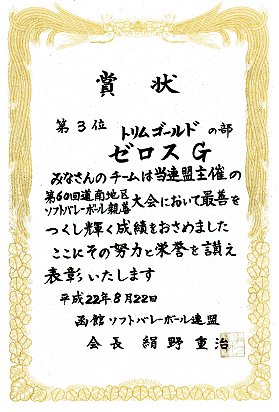 賞状
第3位 トリムゴールドの部
ゼロスG
みなさんのチームは当連盟主催の
第60回道南地区
ソフトバレーボール親善大会において最善を
つくし輝く成績をおさめました
ここにその努力と栄誉を讃え
表彰いたします
平成22年8月22日
函館ソフトバレーボール連盟
会長 絹野重治